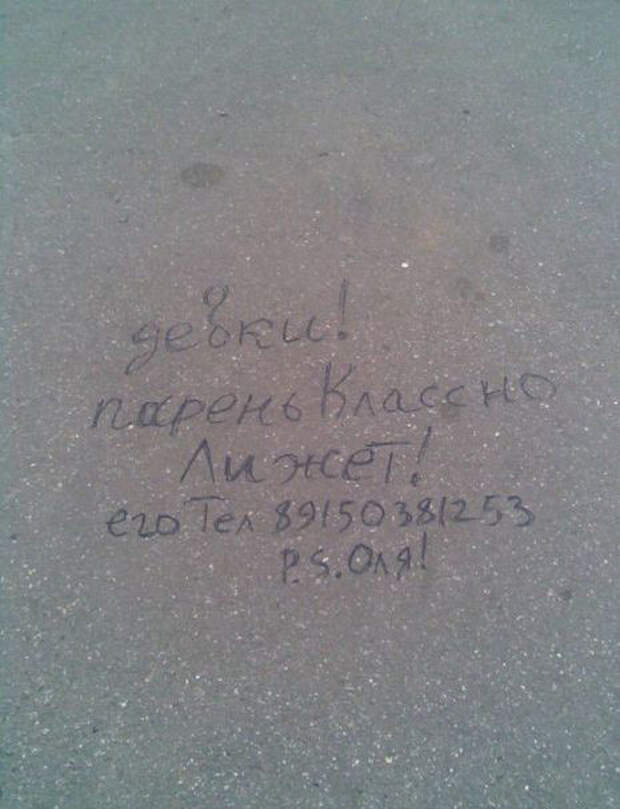 девки!
парень Классно
Лижет!
его Тел 89150381253
P.S. Оля!